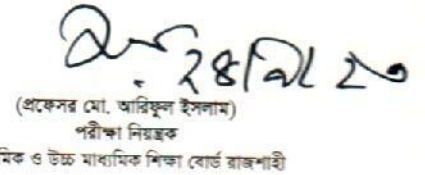 (প্রফেসর মো. আরিফুল ইসলাম)
পরীক্ষা নিয়ন্ত্রক
মিক ও উচ্চ মাধ্যমিক শিক্ষা বোর্ড রাজশাহী